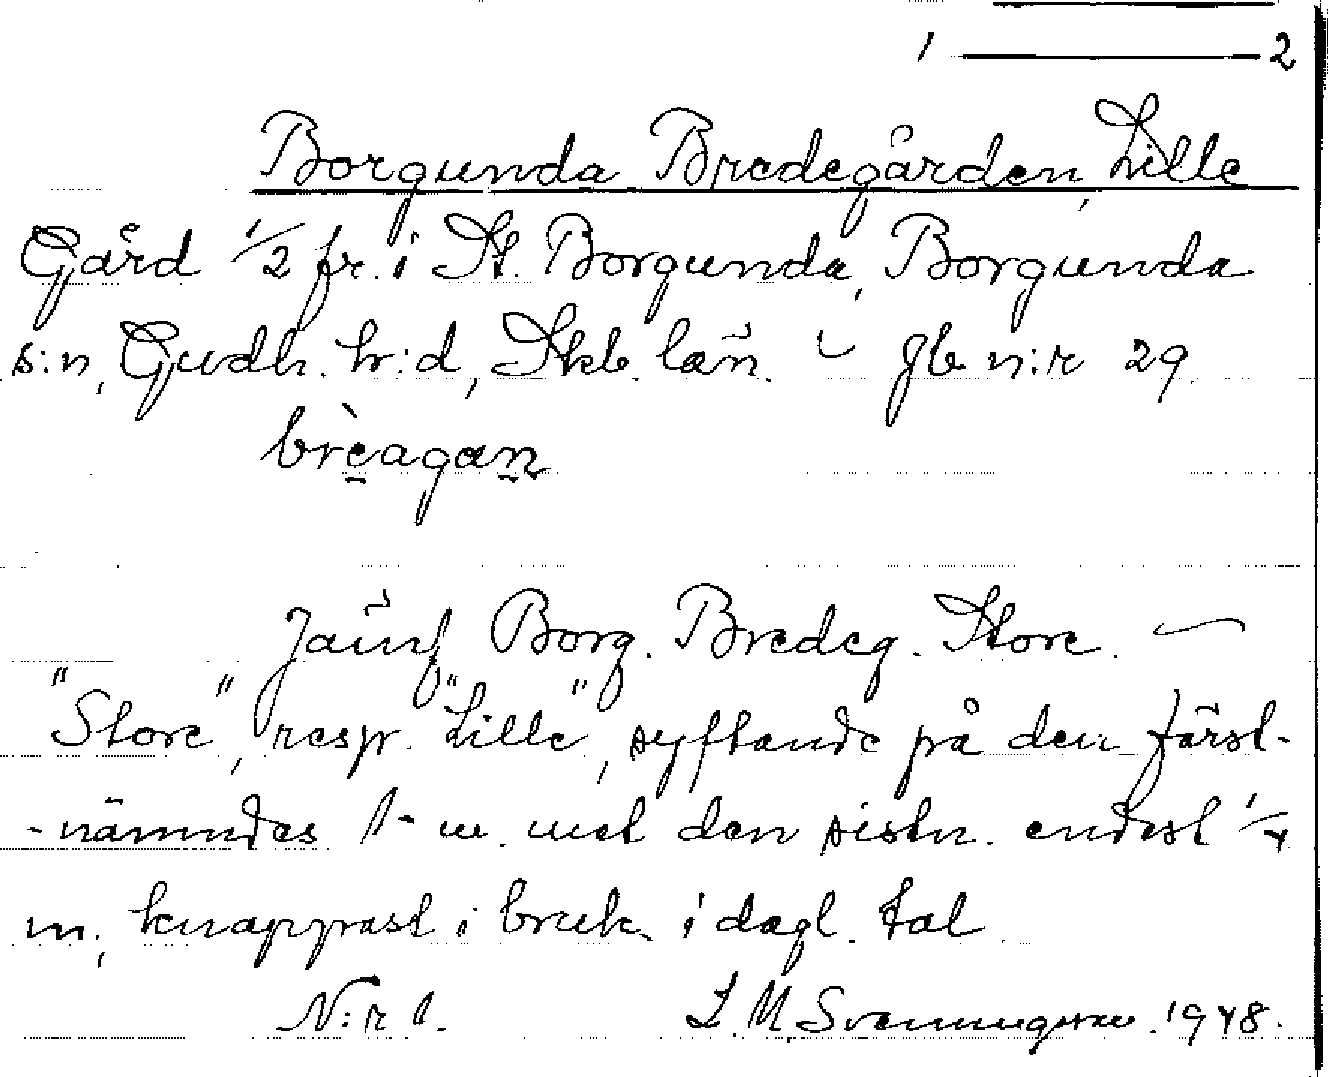 1 — 2
Borgunda Bredegården, Lille
Gård 1/2 fr. i St. Borgunda, Borgunda
s:n, Gudh. h:d, Skb. län. gb n:r 29
brèagan
Jämf Borg. Bredeg. Store. —
"Store", resp. "Lille", syftande på den först-
-nämndes 1- m. mot den sistn. endast 1/4
m, knappast i bruk i dagl. tal
N:r 1. L. M. Svenungsson. 1948.